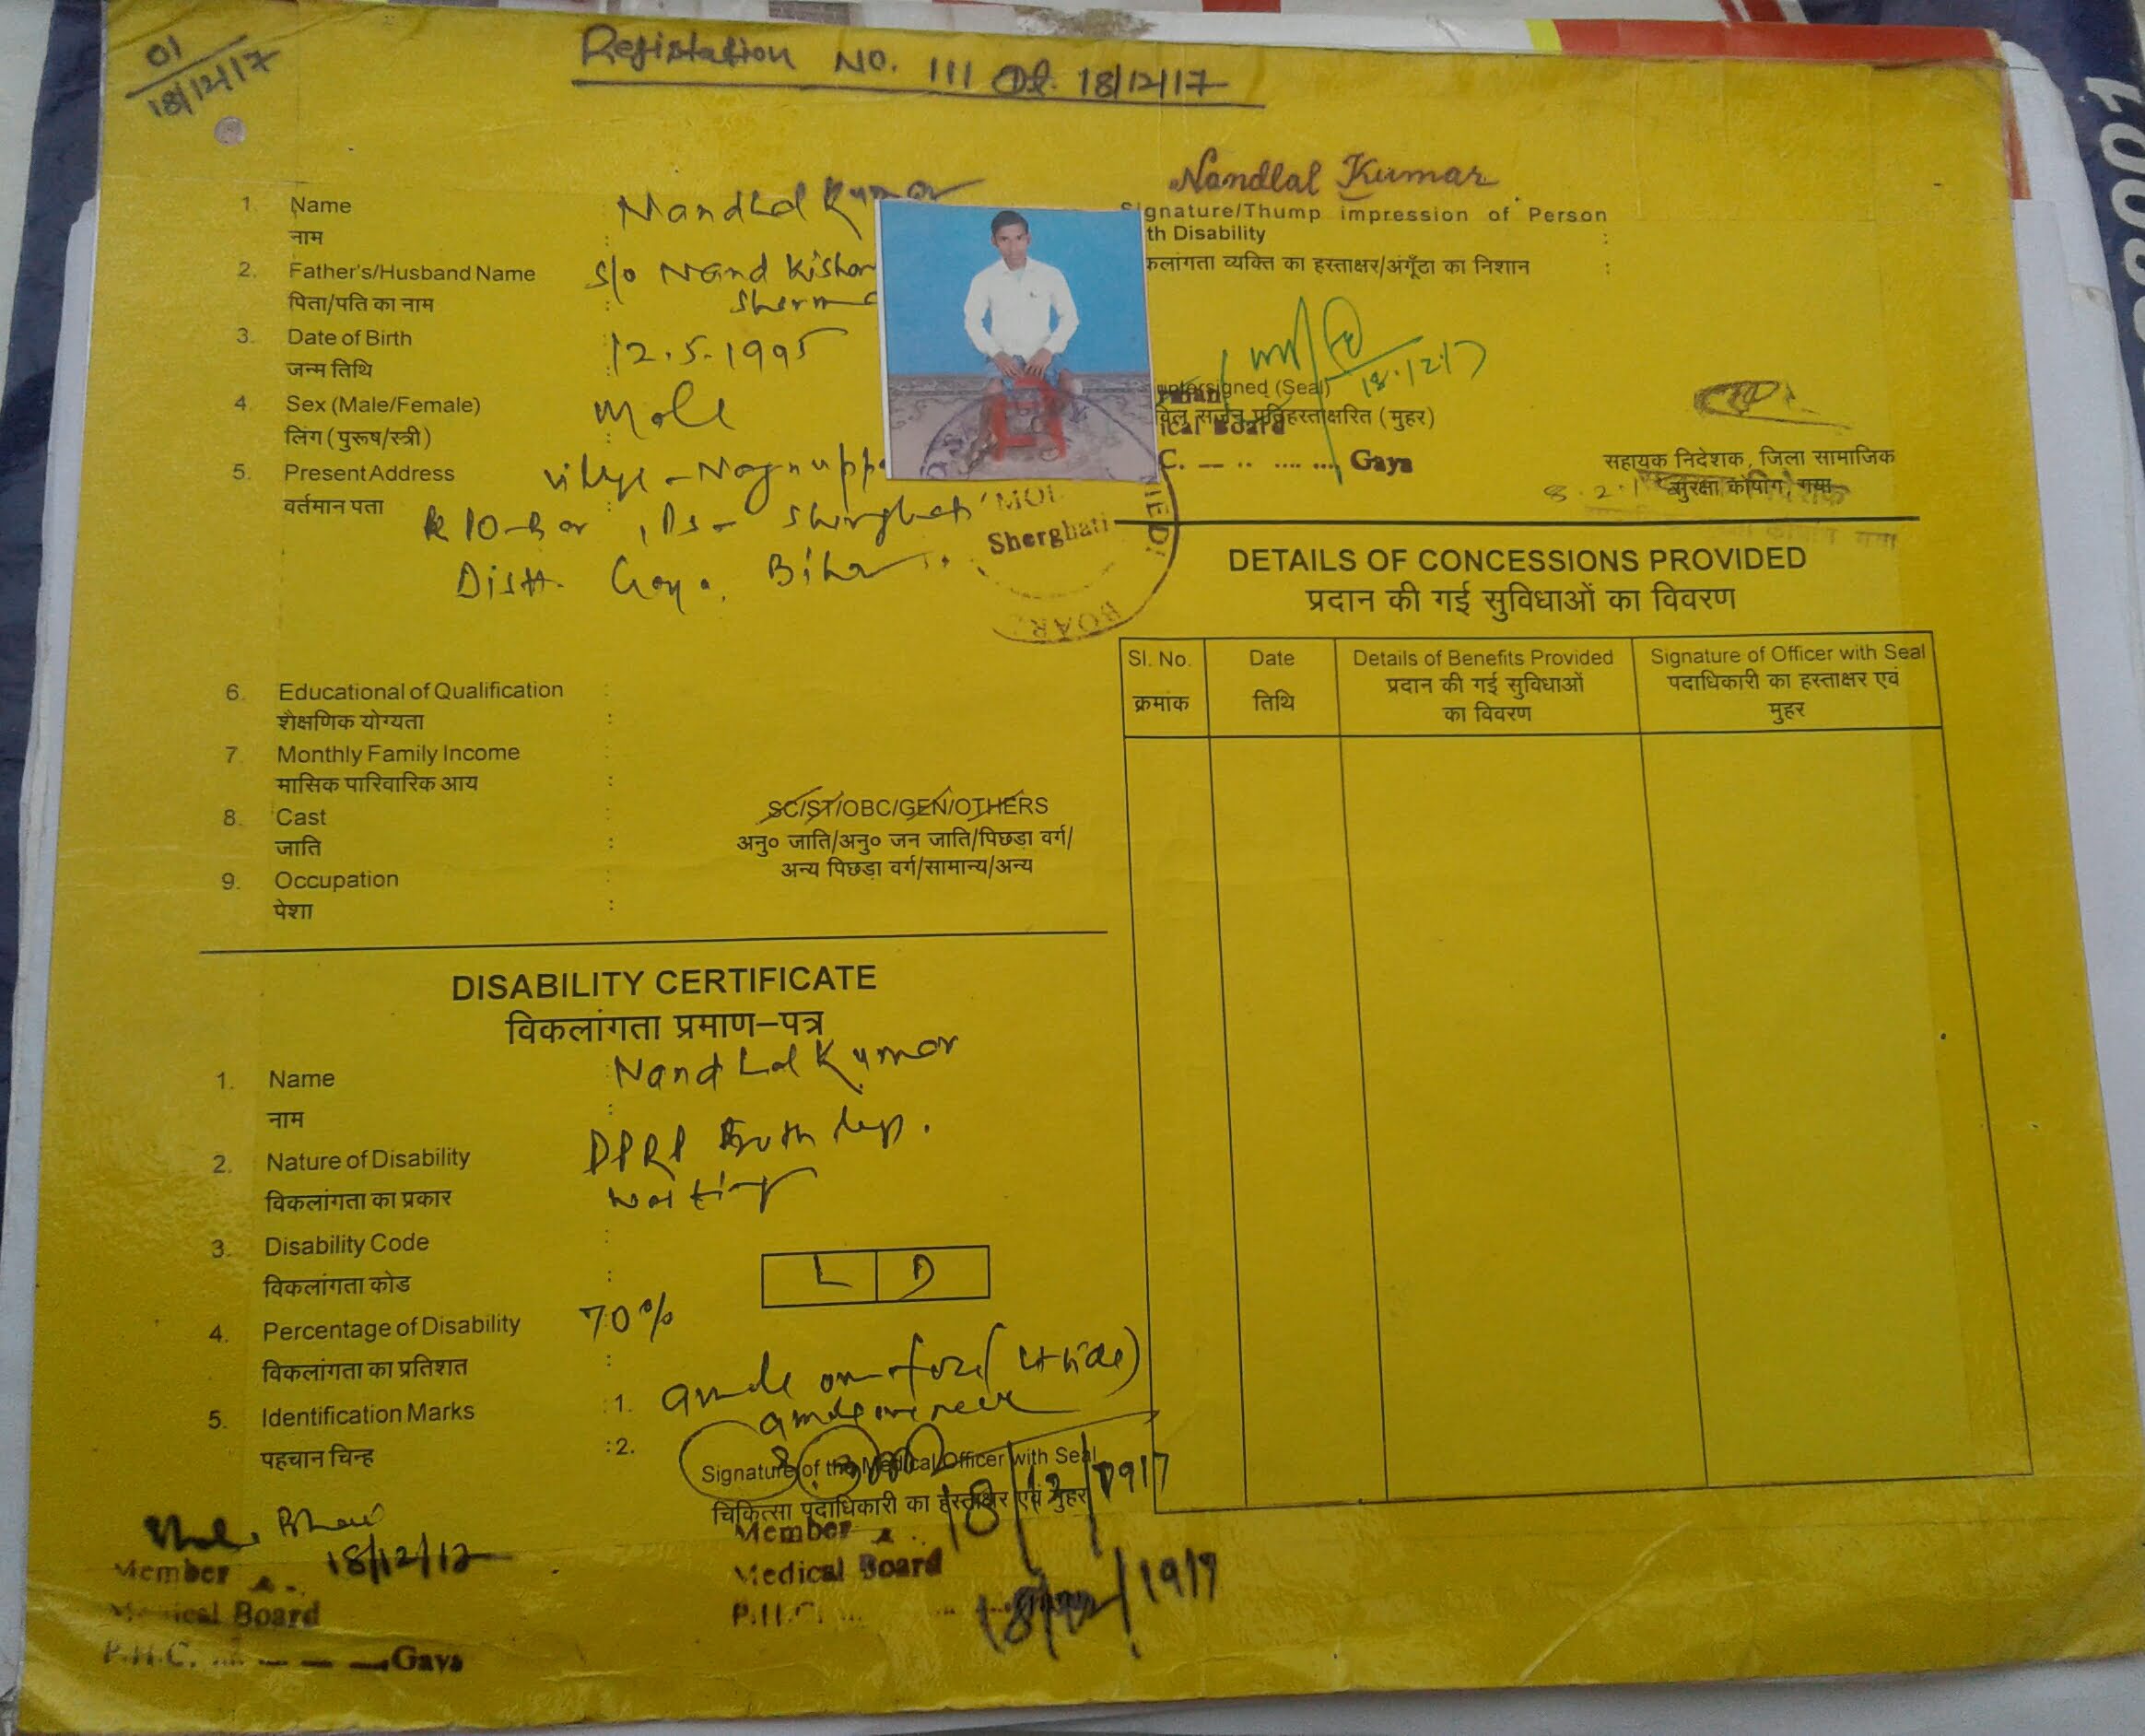 01
18/12/17
Registation No. 111 Dt. 18/12/17
1. Name Nandlal Kumar
नाम :
2. Father's/Husband Name S/o Nand Kishor
पिता/पति का नाम :
3. Date of Birth 12.5.1995
जन्म तिथि :
4. Sex (Male/Female) Male
लिंग (पुरूष/स्त्री) :
5. Present Address
वर्तमान पता
Distt. Gaya. Bihar
Sherghati
6. Educational of Qualification :
शैक्षणिक योग्यता :
7. Monthly Family Income :
मासिक पारिवारिक आय :
8. Cast : SC/ST/OBC/GEN/OTHERS
जाति : अनु० जाति/अनु० जन जाति/पिछड़ा वर्ग/
अन्य पिछड़ा वर्ग/सामान्य/अन्य
9. Occupation :
पेशा :
DISABILITY CERTIFICATE
विकलांगता प्रमाण–पत्र
1. Name Nandlal Kumar
नाम :
2. Nature of Disability
विकलांगता का प्रकार
3. Disability Code :
विकलांगता कोड : L D
4. Percentage of Disability 70%
विकलांगता का प्रतिशत :
5. Identification Marks :1.
पहचान चिन्ह :2.
Signature of the Medical Officer with Seal
चिकित्सा पदाधिकारी का हस्ताक्षर एवं मुहर
18/12/17
Member
Medical Board
P.H.C. Gaya
Member
Medical Board
P.H.C.
Nandlal Kumar
Signature/Thump impression of Person
th Disability :
कलांगता व्यक्ति का हस्ताक्षर/अंगूँठा का निशान :
18.12.17
untersigned (Seal)
विल सर्जन प्रतिहस्ताक्षरित (मुहर)
ical Board
C. Gaya
सहायक निदेशक, जिला सामाजिक
सुरक्षा कोषांग, गया
DETAILS OF CONCESSIONS PROVIDED
प्रदान की गई सुविधाओं का विवरण
Sl. No. Date Details of Benefits Provided Signature of Officer with Seal
क्रमांक तिथि प्रदान की गई सुविधाओं पदाधिकारी का हस्ताक्षर एवं
का विवरण मुहर